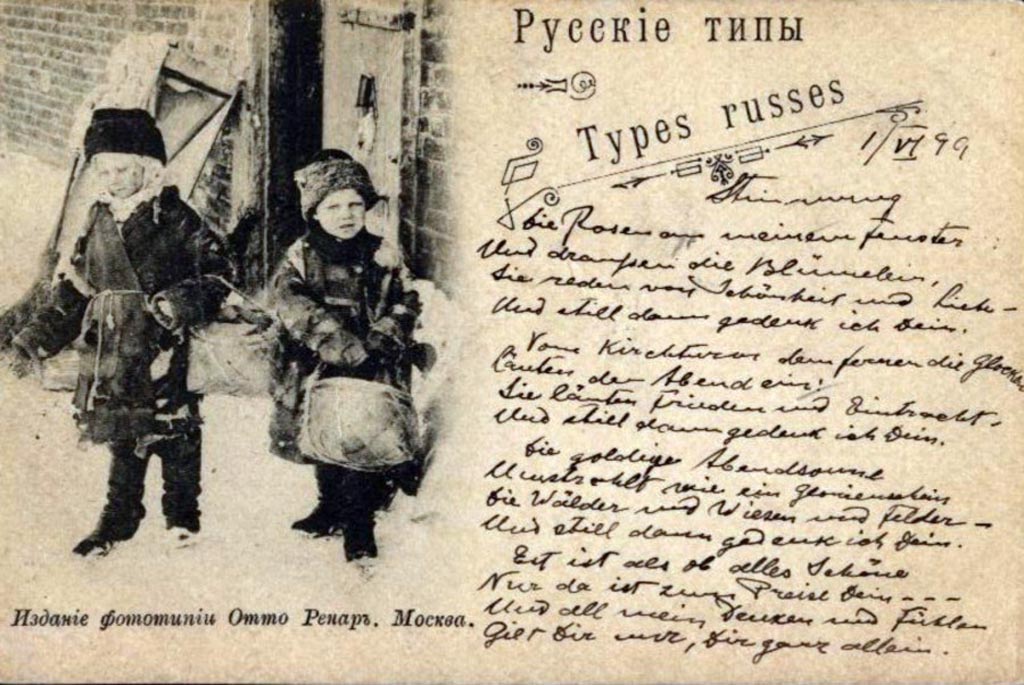 Русскіе типы
Types russes
1/VI 99
Stimmung
Die Rosen an meinem Fenster
Und draußen die Blümelein,
Sie reden von Schönheit und Liebe –
Und still dann gedenk ich Dein.
Vom Kirchturm dem fernen die Glocken
Läuten den Abend ein;
Sie läuten Frieden und Eintracht –
Und still dann gedenk ich Dein.
Die goldige Abendsonne
Umstrahlt wie ein Glorienschein
Die Wälder und Wiesen und Felder –
Und still dann gedenk ich Dein.
Est ist als ob alles Schöne
Nur da ist zum Preise Dein – – –
Und all mein Denken und Fühlen
Gilt Dir nur, Dir ganz allein.
Изданіе фототипіи Отто Ренаръ. Москва.